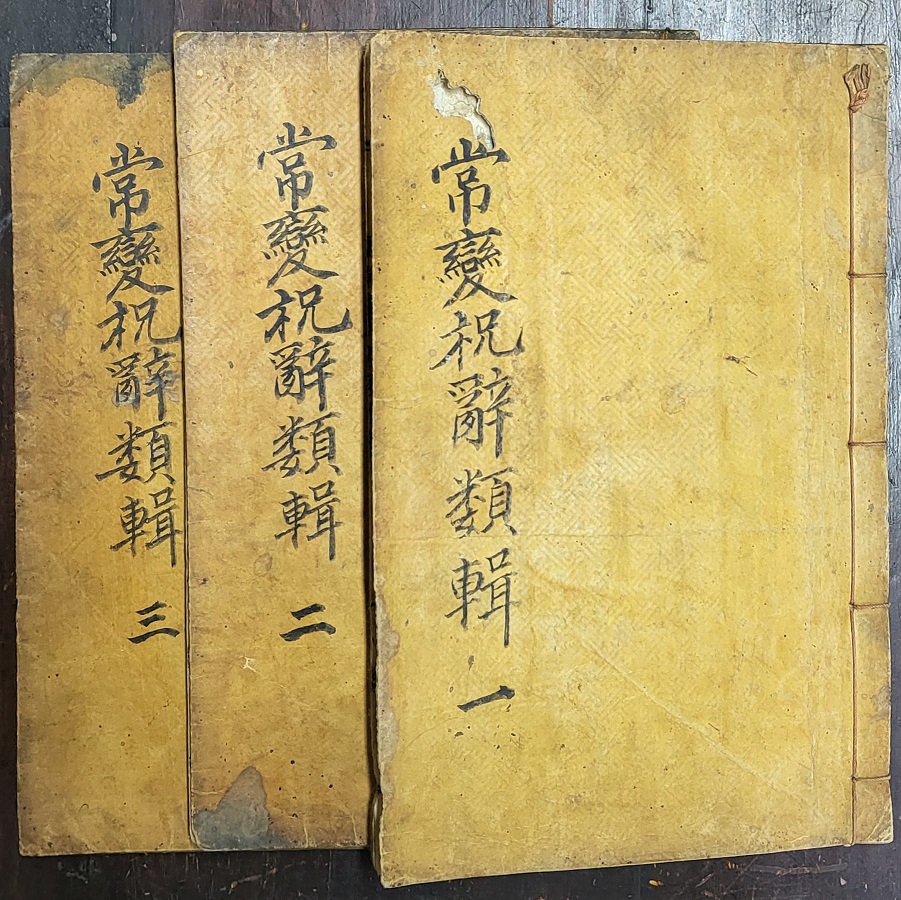 常變祝辭類輯 一
常變祝辭類輯 二
常變祝辭類輯 三